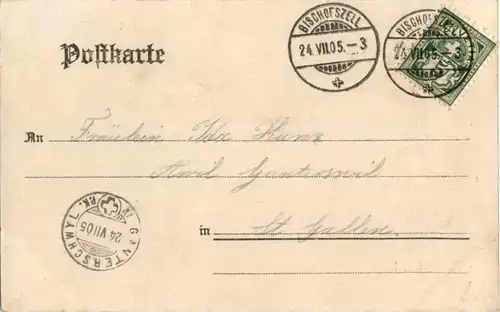 BISCHOFSZELL
24.VII.05.-3
BISCHOFSZELL
24.VII.05.-3
Postkarte
An Fräulein Ida Kunz
in St. Gallen
GANTERSCHWYL
24 VII 05